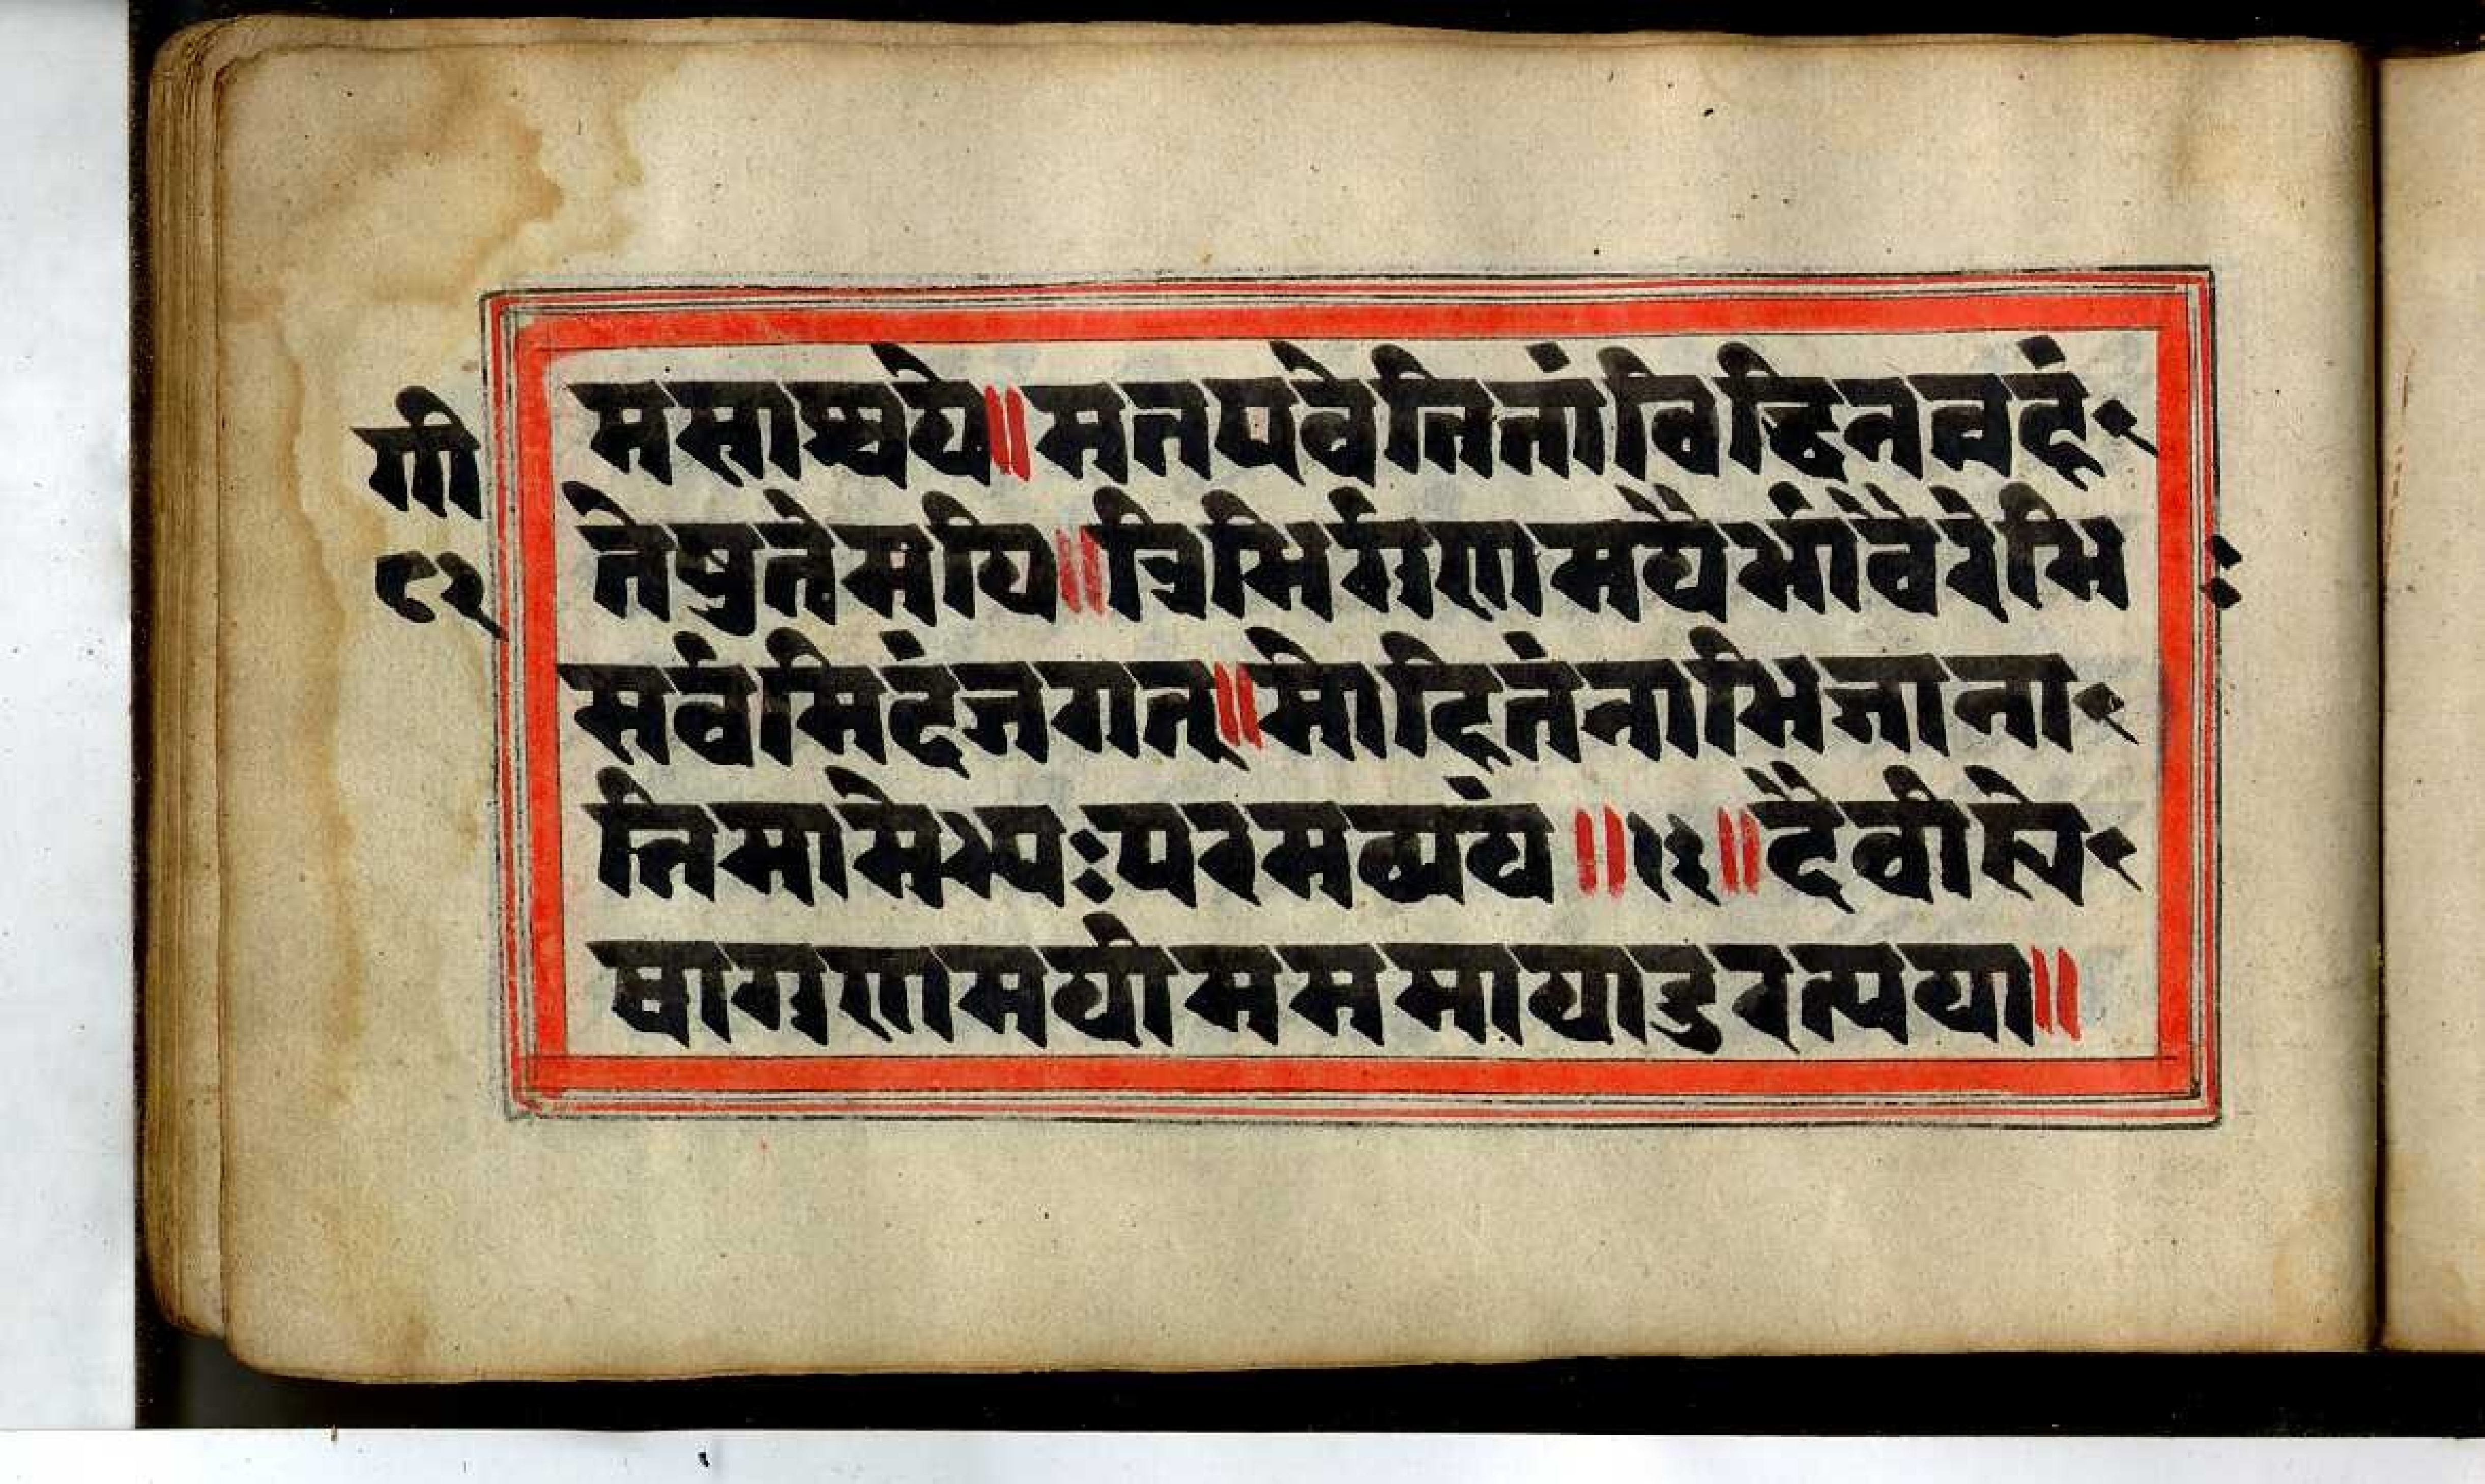 मसाश्चये॥मतएवेतितांविद्धिनत्वहं
गी
तेषुतेमयि॥त्रिभिर्गुणमयैर्भावैरेभि
८२
सर्वमिदंजगत्॥मोहितंनाभिजाना
तिमामेभ्यःपरमव्ययं॥१३॥दैवीह्ये
षागुणमयीमममायादुरत्यया॥